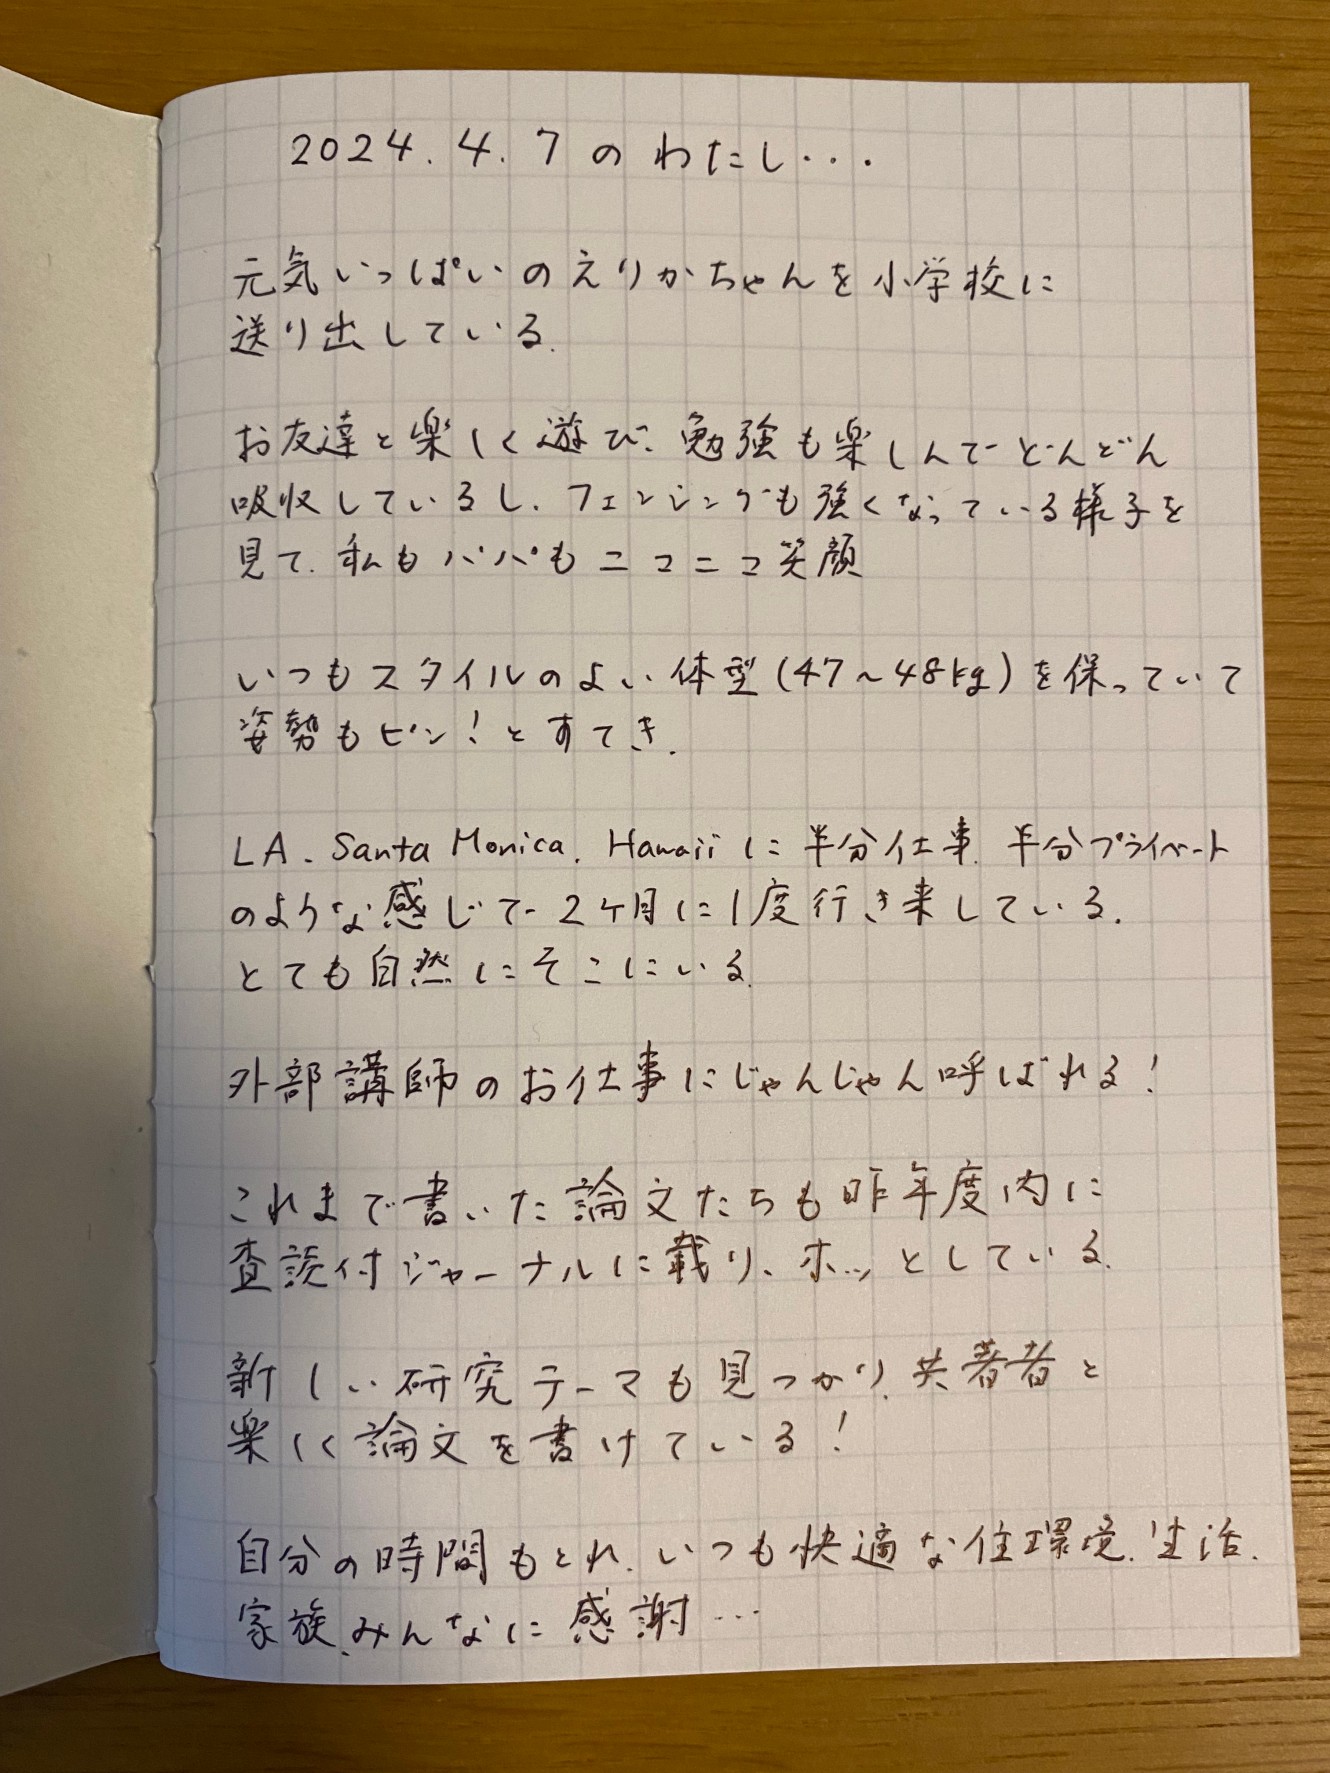 2024.4.7のわたし...
元気いっぱいのえりかちゃんを小学校に
送り出している.
お友達と楽しく遊び、勉強も楽しんでどんどん
吸収しているし、フェンシングも強くなっている様子を
見て、私もパパもニコニコ笑顔
いつもスタイルのよい体型(47~48kg)を保っていて
姿勢もピン!とすてき.
LA、Santa Monica、Hawaiiに半分仕事、半分プライベート
のような感じで2ヶ月に1度行き来している.
とても自然にそこにいる.
外部講師のお仕事にじゃんじゃん呼ばれる!
これまで書いた論文たちも昨年度内に
査読付ジャーナルに載り、ホッとしている.
新しい研究テーマも見つかり、共著者と
楽しく論文を書けている!
自分の時間もとれ、いつも快適な住環境、生活、
家族、みんなに感謝...